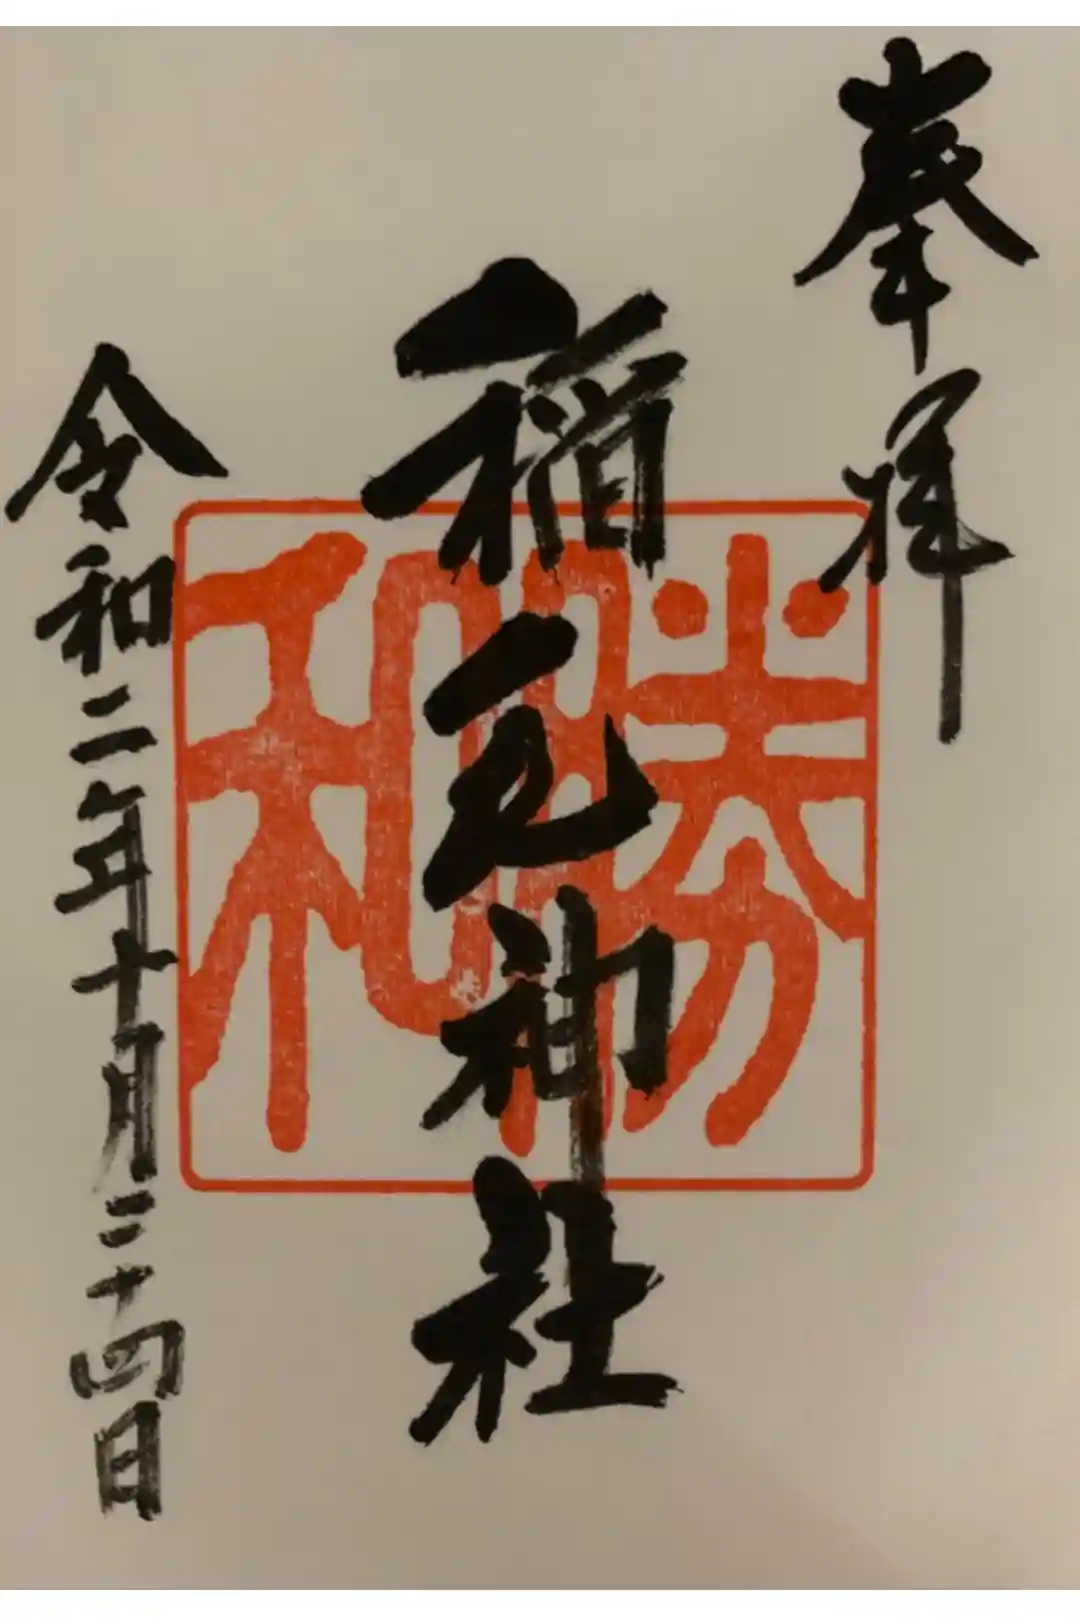 奉拝
稲毛神社
令和二年十月二十四日
勝和